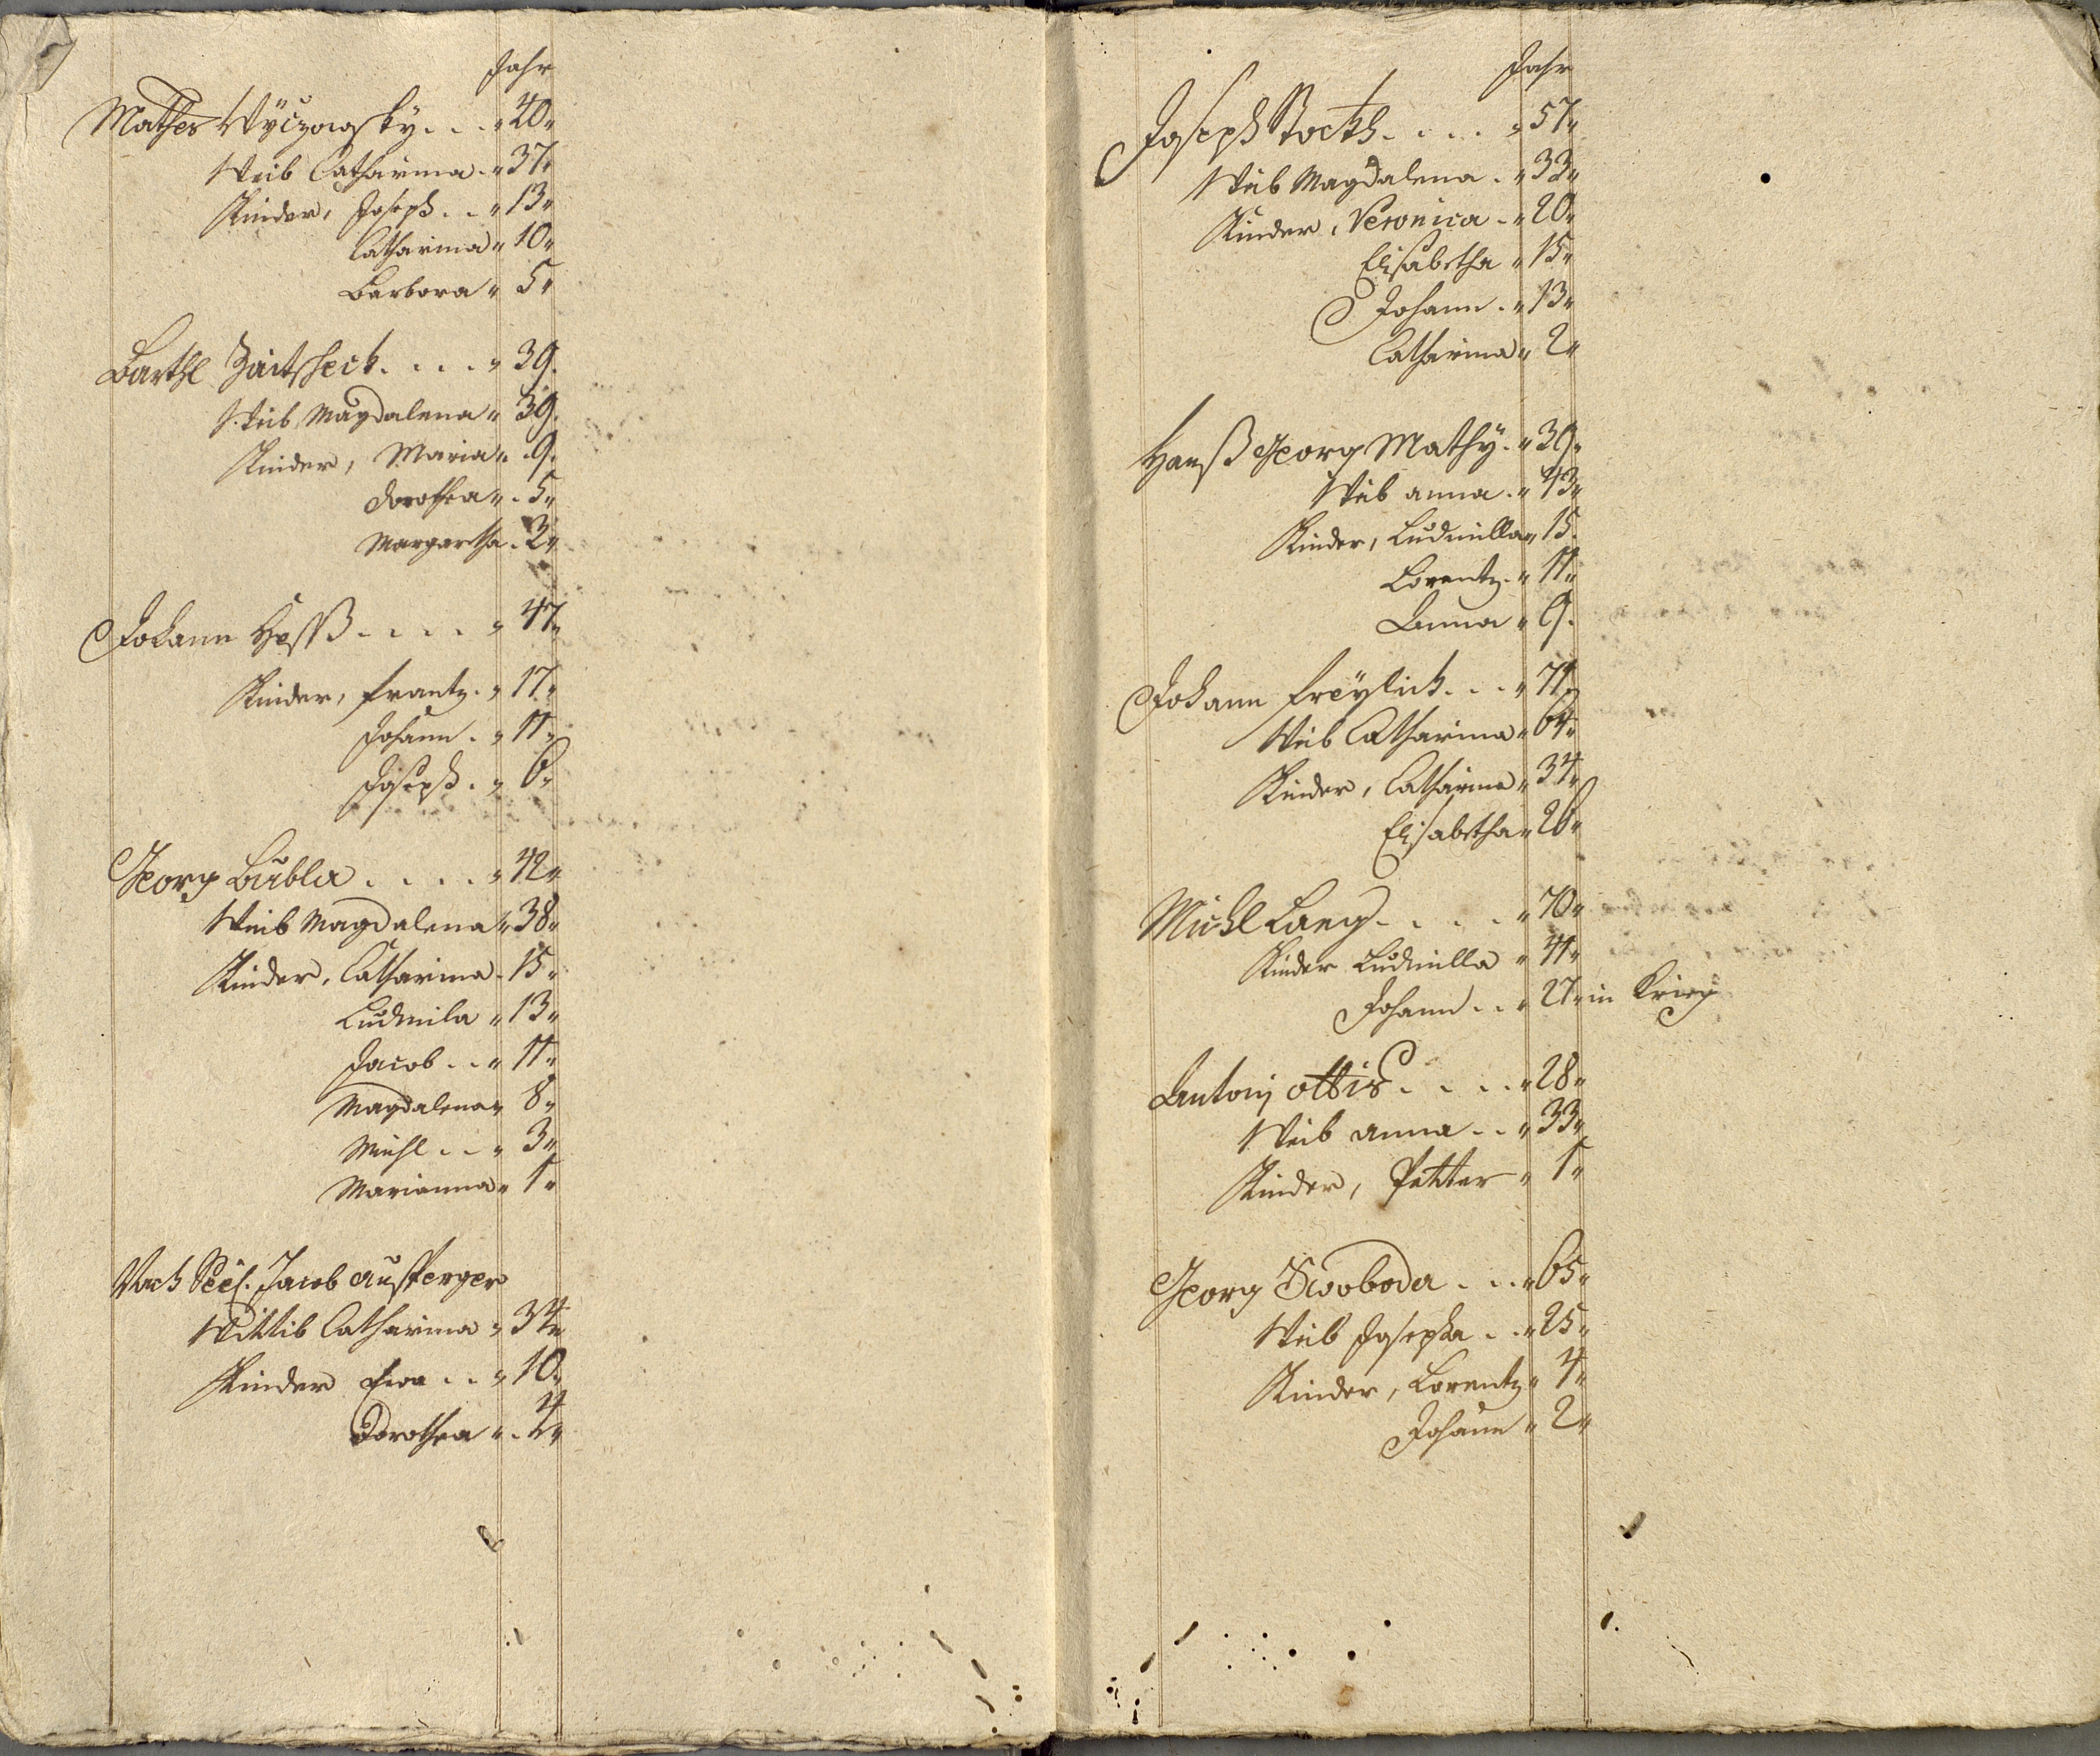 Jahr
Mathes Wÿczowsky . . . „ 40 „
Weib Catharina . „ 37 „
Kinder, Joseph . . „ 13 „
Catharina „ 10 „
Barbora „ 5 „
Barthl Zaitscheck . . . . „ 39 .
Weib Magdalena „ 39 .
Kinder, Maria „ . 9 .
Dorothea „ . 5 „
Margaretha . 3 „
Johann Heßß . . . . „ 47 „
Kinder, Frantz . „ 17 „
Johann . „ 11 „
Joseph . „ 6 „
Georg Bubla . . . . „ 42 „
Weib Magdalena „ 38 „
Kinder, Catharina . 15 „
Ludmila „ 13 „
Jacob . . „ 11 „
Magdalena „ 8 „
Michl . . „ 3 „
Marianna „ 1 „
Nach Seel. Jacob Austerger
Wittib Catharina „ 34 „
Kinder Ewa . . „ 10 „
Dorothea „ . 4 „
Jahr
Joseph Stockh . . . . „ 57 „
Weib Magdalena . „ 33 „
Kinder, Veronica . „ 20 „
Elisabetha „ 15 „
Johann . „ 13 „
Catharina „ 2 „
Hanß Georg Mathÿ . „ 39 „
Weib Anna . „ 43 „
Kinder, Ludmilla „ 15 .
Lorentz . „ 11 „
Anna „ 9 .
Johann Freÿlich . . . „ 71 „
Weib Catharina „ 64 „
Kinder, Catharina „ 34 „
Elisabetha „ 26 „
Michl Lang . . . . „ 70 „
Kinder Ludmilla „ 41 „
Johann . . „ 27 „ in Krieg
Antonj Ottis . . . . „ 28 „
Weib Anna . . „ 33 „
Kinder, Petter „ 1 „
Georg Swoboda . . . „ 65 „
Weib Josepha . . „ 25 „
Kinder, Lorentz „ 4 „
Johann „ 2 „